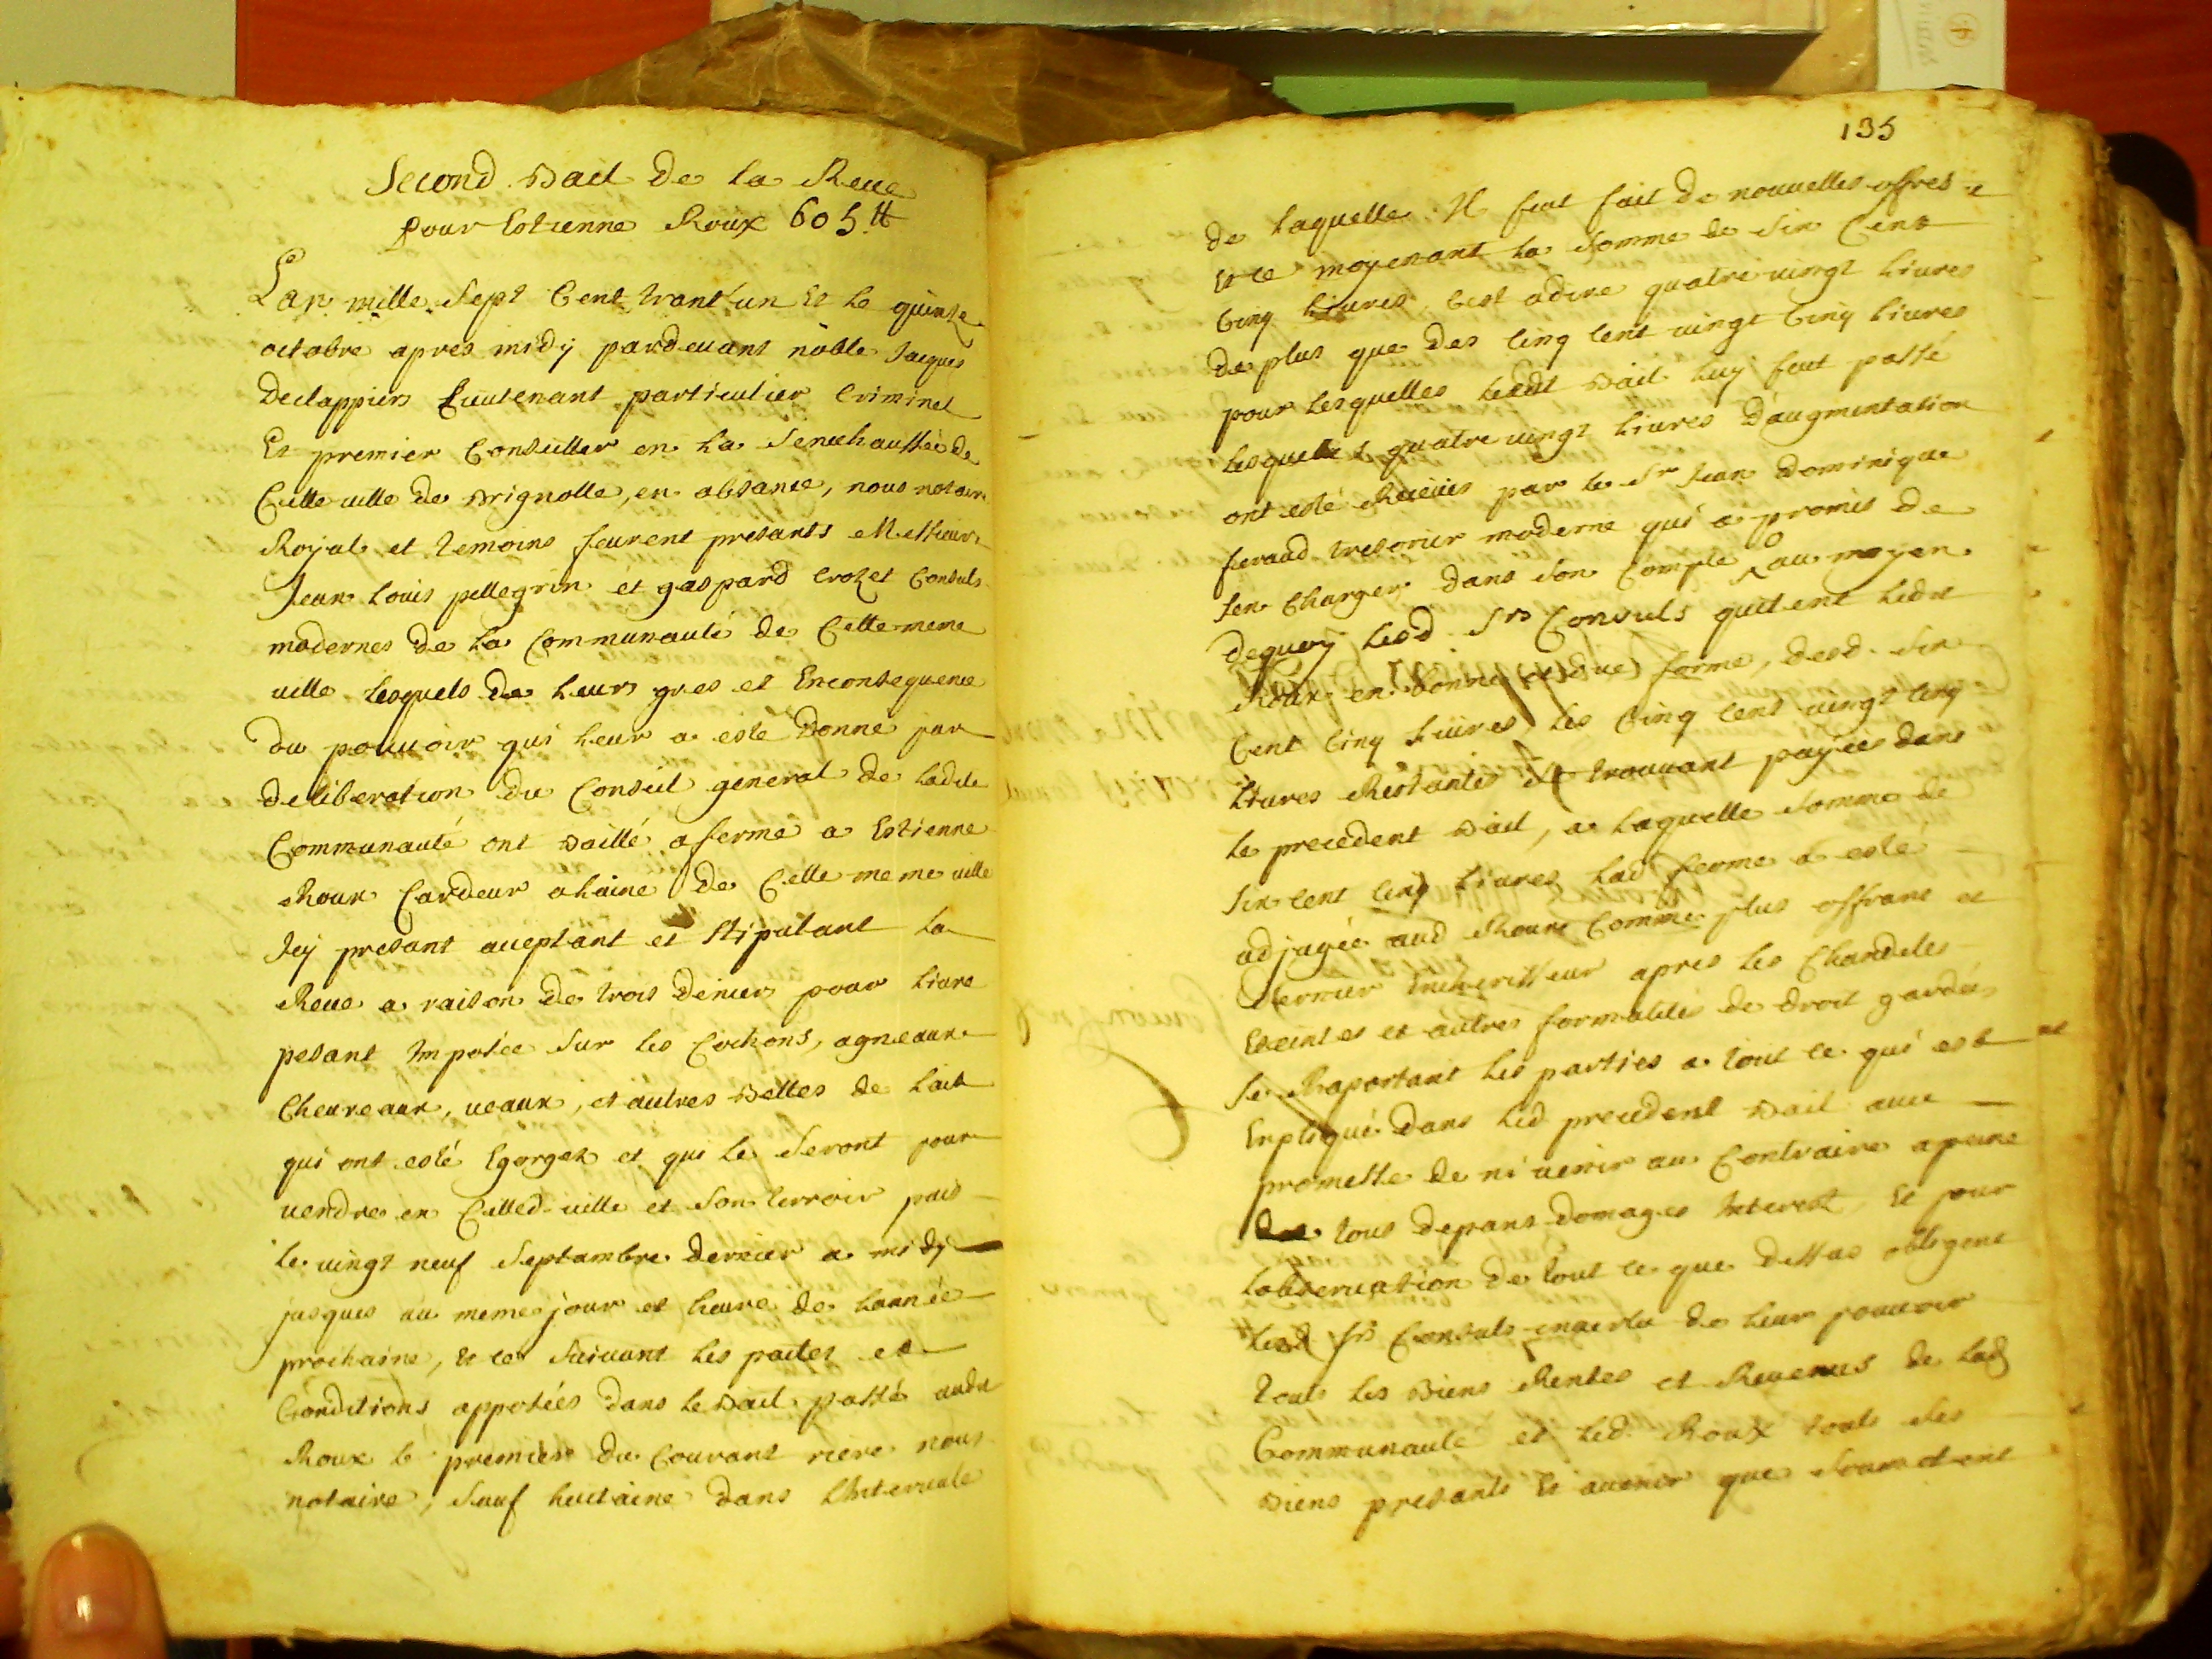 Second Bail de la Reue
pour Estienne Roux 605 ₶
Lan mille sept Cent trant'un Et le quinze
octobre apres midy pardeuant noble Jacques
Declappiers Lieutenant particulier Criminel
Et premier Conseiller en la Senechaussée de
Cette ville de Brignolle, en absance, nous notaire
Royal et temoins feurent presants Messieurs
Jean Louis pellegrin et gaspard Crozet Consuls
modernes de la Communauté de Cette meme
uille lesquels de leurs gres et Enconsequence
du pouuoir qui leur a esté Donné par
deliberation du Conseil general de ladite
Communauté ont Baillé aferme a Estienne
Roux Cardeur alaine de Cette meme uille
Icy presant aceptant et Stipulant la
Reue a raison de trois deniers pour liure
pesant Imposée sur les Cochons, agneaux
Cheureaux, ueaux, et autres Bettes de lait
qui ont esté Egorgez et qui le seront pour
uendre en Cetted. uille et son terroir puis
le uingt neuf Septambre dernier a midy
jusques au meme jour et heure de lannée
prochaine, Et ce suiuant les pactes et
Conditions apposées dans le Bail passé audit
Roux le premier du Courant riere nous
notaire, Sauf huitaine dans Lhinteruale
135
de laquelle Il feut fait de nouuelles offres
Et ce moyenant la somme de six Cens
Cinq liures, Cest adire quatre uingt liures
de plus que des Cinq Cent uingt Cinq liures
pour lesquelles ledit Bail luy feut passé
lesquelles quatre uingt liures Daugmentation
ont esté Receües par le Sr Jean Dominique
feraud tresorier moderne qui a promis de
sen Charger dans son Compte au moyen
dequoy lesd. Srs Consuls quitent ledit
Roux en bonne et due forme, desd. six
Cent Cinq liures, les Cinq Cent uingt Cinq
liures Restantes se trouuant payées dans
le precedent Bail, a laquelle somme de
six cent Cinq liures, lad ferme a esté
adjugée aud Roux Comme plus offrant et
dernier Encherisseur apres les Chandeles
Eteintes et autres formalités de droit gardées
se Raportant les parties a tout ce qui est
Expliqué dans led precedent Bail auec
promesse de ni uenir au Contraire apeine
de tous depans domages Interest, Et pour
lobseruation de tout ce que dessus obligent
lesd Srs Consuls enuertu de leur pouuoir
touts les Biens Rentes et Reuenus de lad
Communauté et led. Roux touts ses
Biens presants Et auenir que soumetent